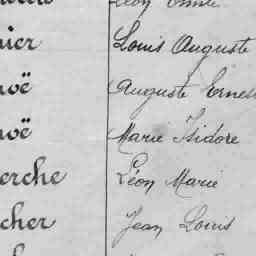 Léon Emile
nier Louis Auguste
voë Auguste Ernes
voë Marie Isidore
erche Léon Marie
cher Jean Louis